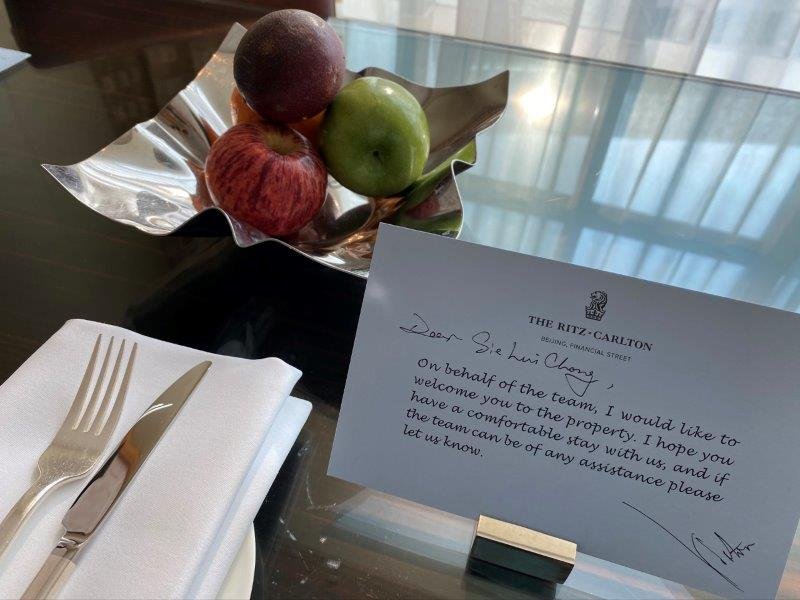 THE RITZ-CARLTON
BEIJING, FINANCIAL STREET
Dear Sie Lui Chong,
On behalf of the team, I would like to
welcome you to the property. I hope you
have a comfortable stay with us, and if
the team can be of any assistance please
let us know.